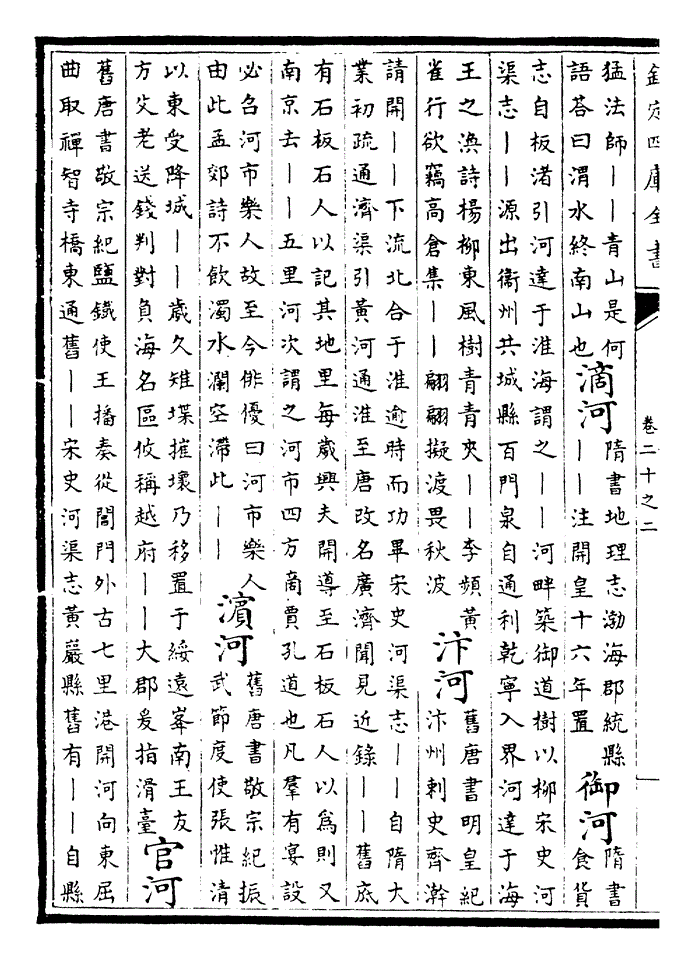 欽定四庫全書
卷二十之二
猛法師——青山是何
語荅曰渭水終南山也
滴河
隋書地理志渤海郡統縣
——注開皇十六年置
御河
隋書
食貨
志自板渚引河達于淮海謂之——河畔築御道樹以柳宋史河
渠志——源出衞州共城縣百門泉自通利乾寧入界河達于海
王之渙詩楊柳東風樹青青夾——李頻黃
雀行欲竊高倉集——翩翩擬渡畏秋波
汴河
舊唐書明皇紀
汴州刺史齊澣
請開——下流北合于淮逾時而功畢宋史河渠志——自隋大
業初疏通濟渠引黃河通淮至唐改名廣濟聞見近錄——舊底
有石板石人以記其地里每歲興夫開導至石板石人以為則又
南京去——五里河次謂之河市四方商賈孔道也凡羣有宴設
必召河市樂人故至今俳優曰河市樂人
由此孟郊詩不飲濁水瀾空滯此——
濵河
舊唐書敬宗紀振
武節度使張惟清
以東受降城——歲久雉堞摧壞乃移置于綏遠峯南王友
方父老送錢判對負海名區攸稱越府——大郡爰指滑臺
官河
舊唐書敬宗紀鹽鐵使王播奏從閶門外古七里港開河向東屈
曲取禪智寺橋東通舊——宋史河渠志黃巖縣舊有——自縣